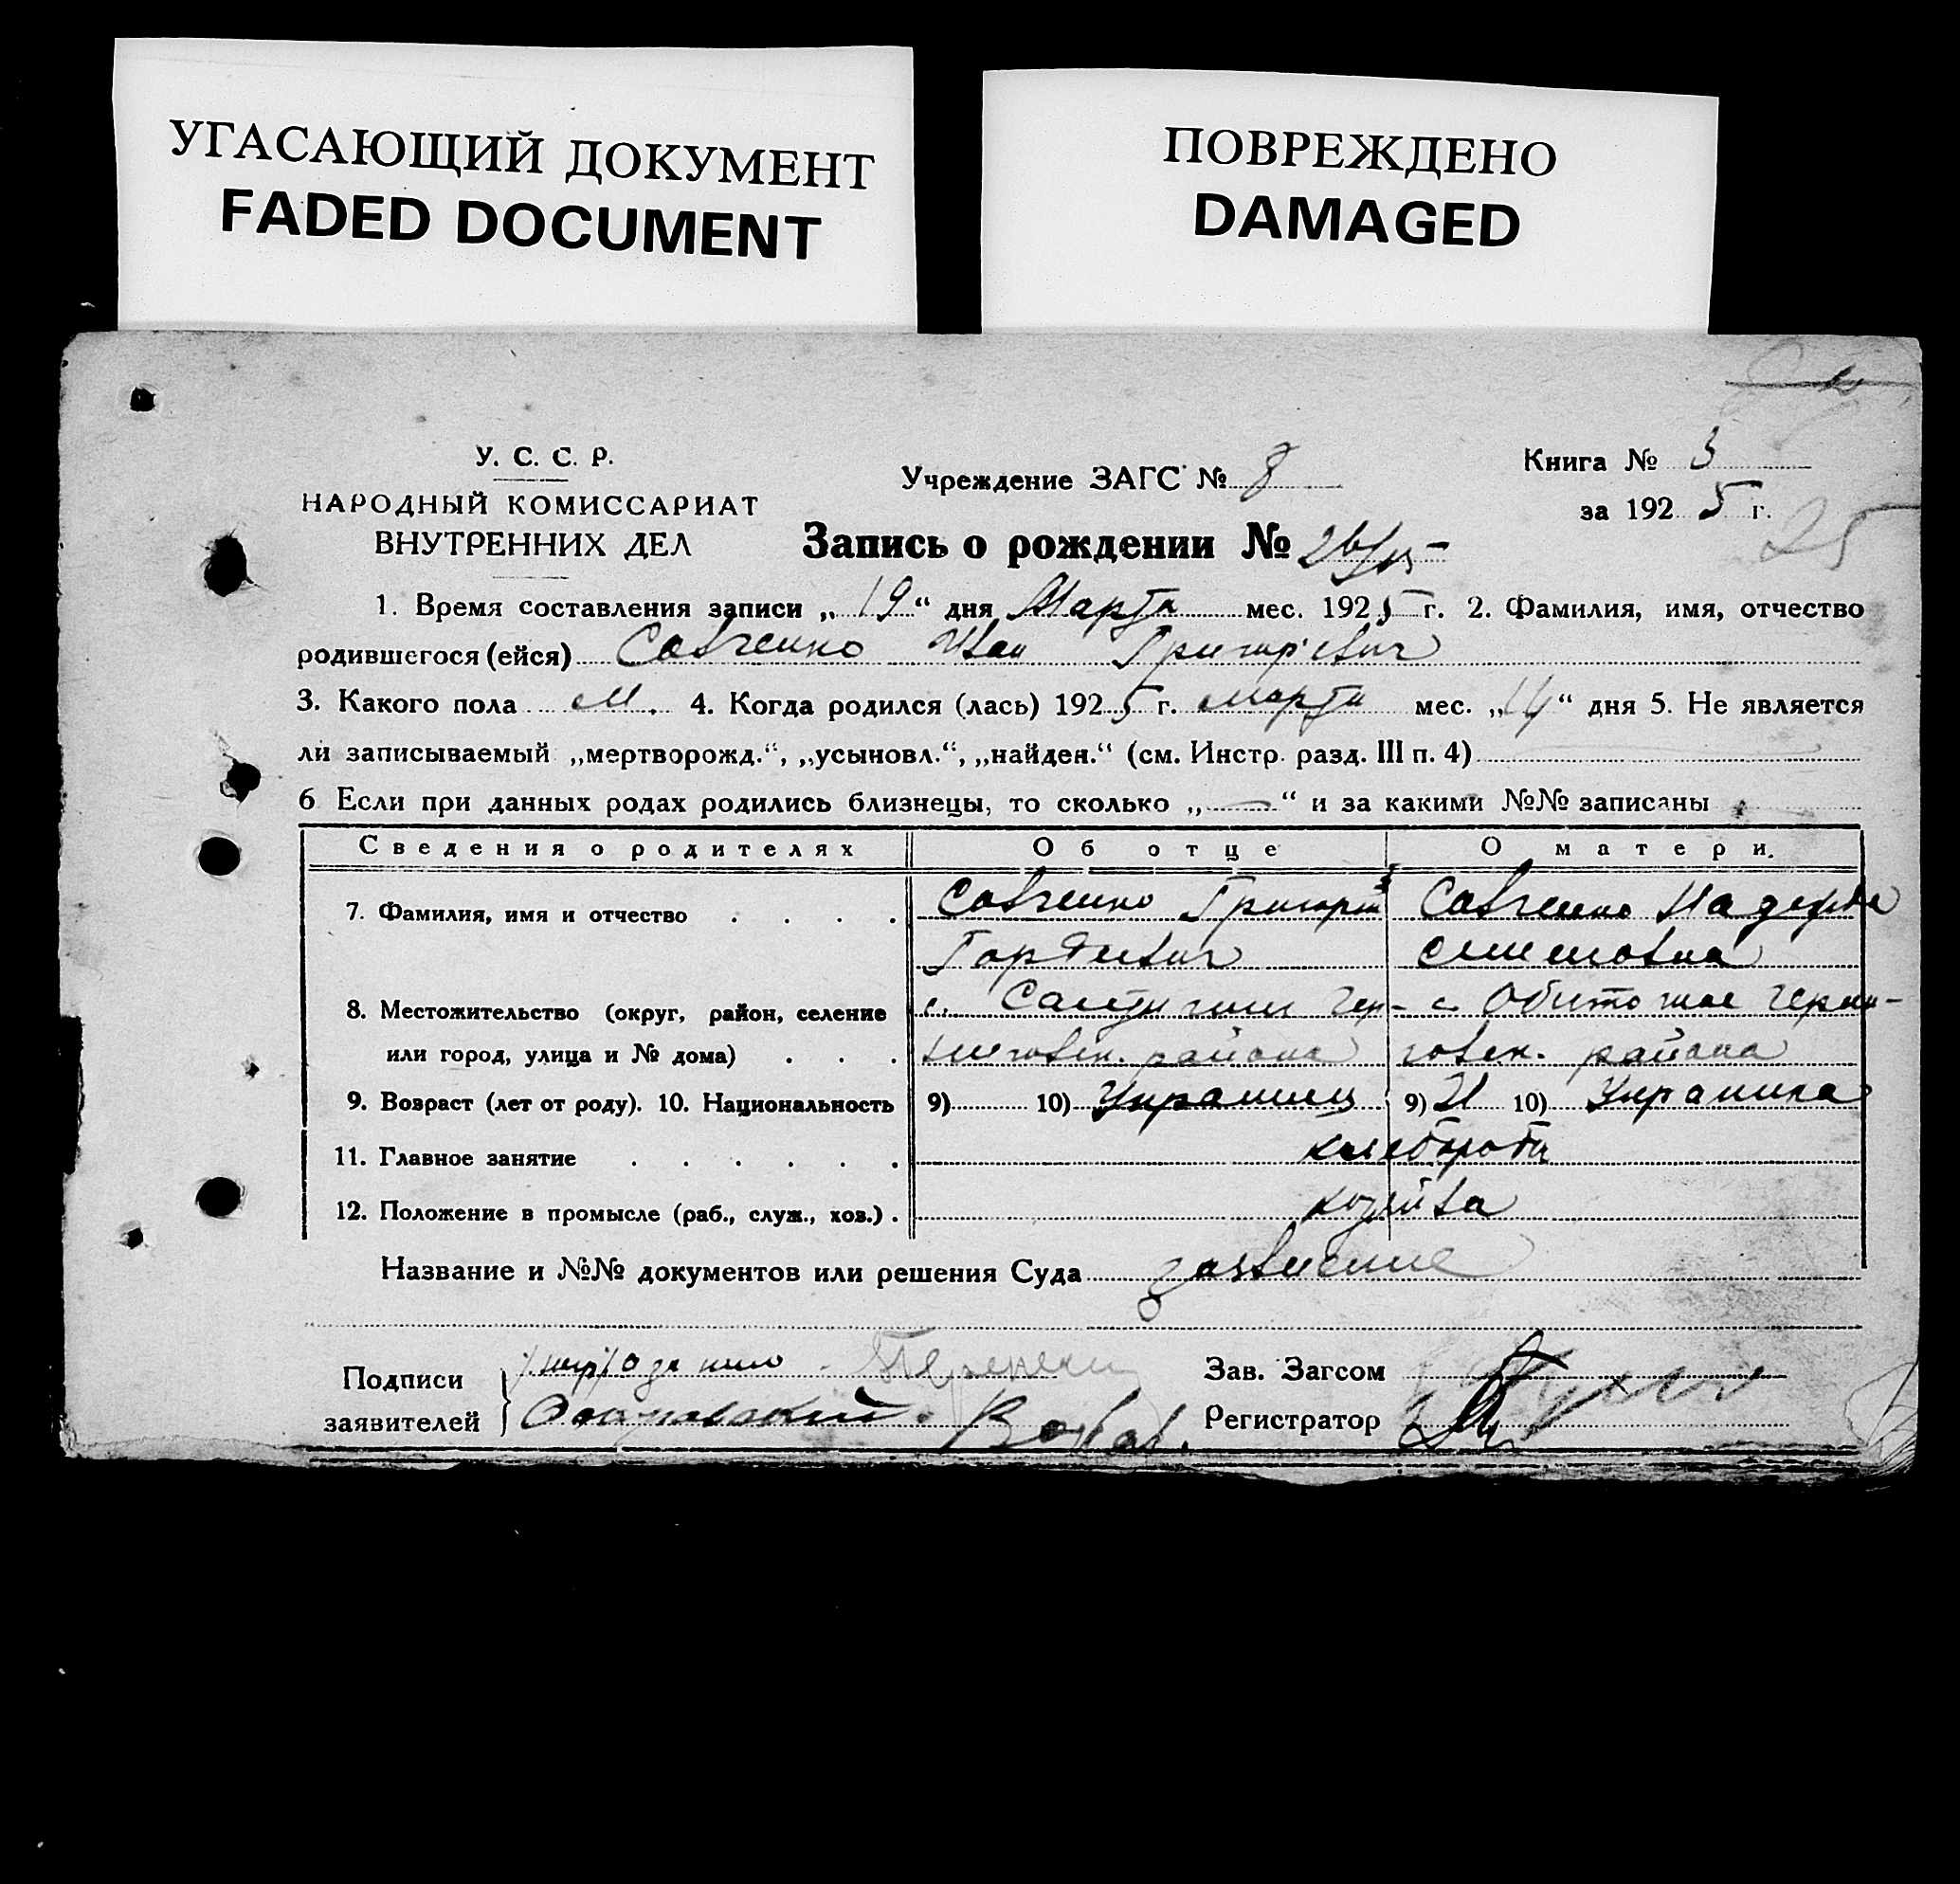 УГАСАЮЩИЙ ДОКУМЕНТ
FADED DOCUMENT
ПОВРЕЖДЕНО
DAMAGED
У. С. С. Р.
НАРОДНЫЙ КОМИССАРИАТ
ВНУТРЕННИХ ДЕЛ
Учреждение ЗАГС № 8
Книга № 3
за 1925 г.
25
Запись о рождении № 26
1. Время составления записи „19“ дня Марта мес. 1925 г. 2. Фамилия, имя, отчество
родившегося (ейся) Савченко Иван Григор'евич
3. Какого пола М. 4. Когда родился (лась) 1925 г. марта мес. „14“ дня 5. Не является
ли записываемый „мертворожд.“, „усыновл.“, „найден.“ (см. Инстр. разд. III п. 4)
6 Если при данных родах родились близнецы, то сколько „—“ и за какими №№ записаны
Сведения о родителях Об отце О матери.
7. Фамилия, имя и отчество Савченко Григорий Савченко Надежда
Гордеевич Семеновна
8. Местожительство (округ, район, селение с. Салтичии Чер- с. Обиточное Черни-
или город, улица и № дома) ниговск. района говск. района
9. Возраст (лет от роду). 10. Национальность 9) 10) Украинец 9) 21 10) Украинка
11. Главное занятие хлебороби
12. Положение в промысле (раб., служ., хоз.) хозяйва
Название и №№ документов или решения Суда заявление
Подписи
заявителей
Зав. Загсом
Регистратор